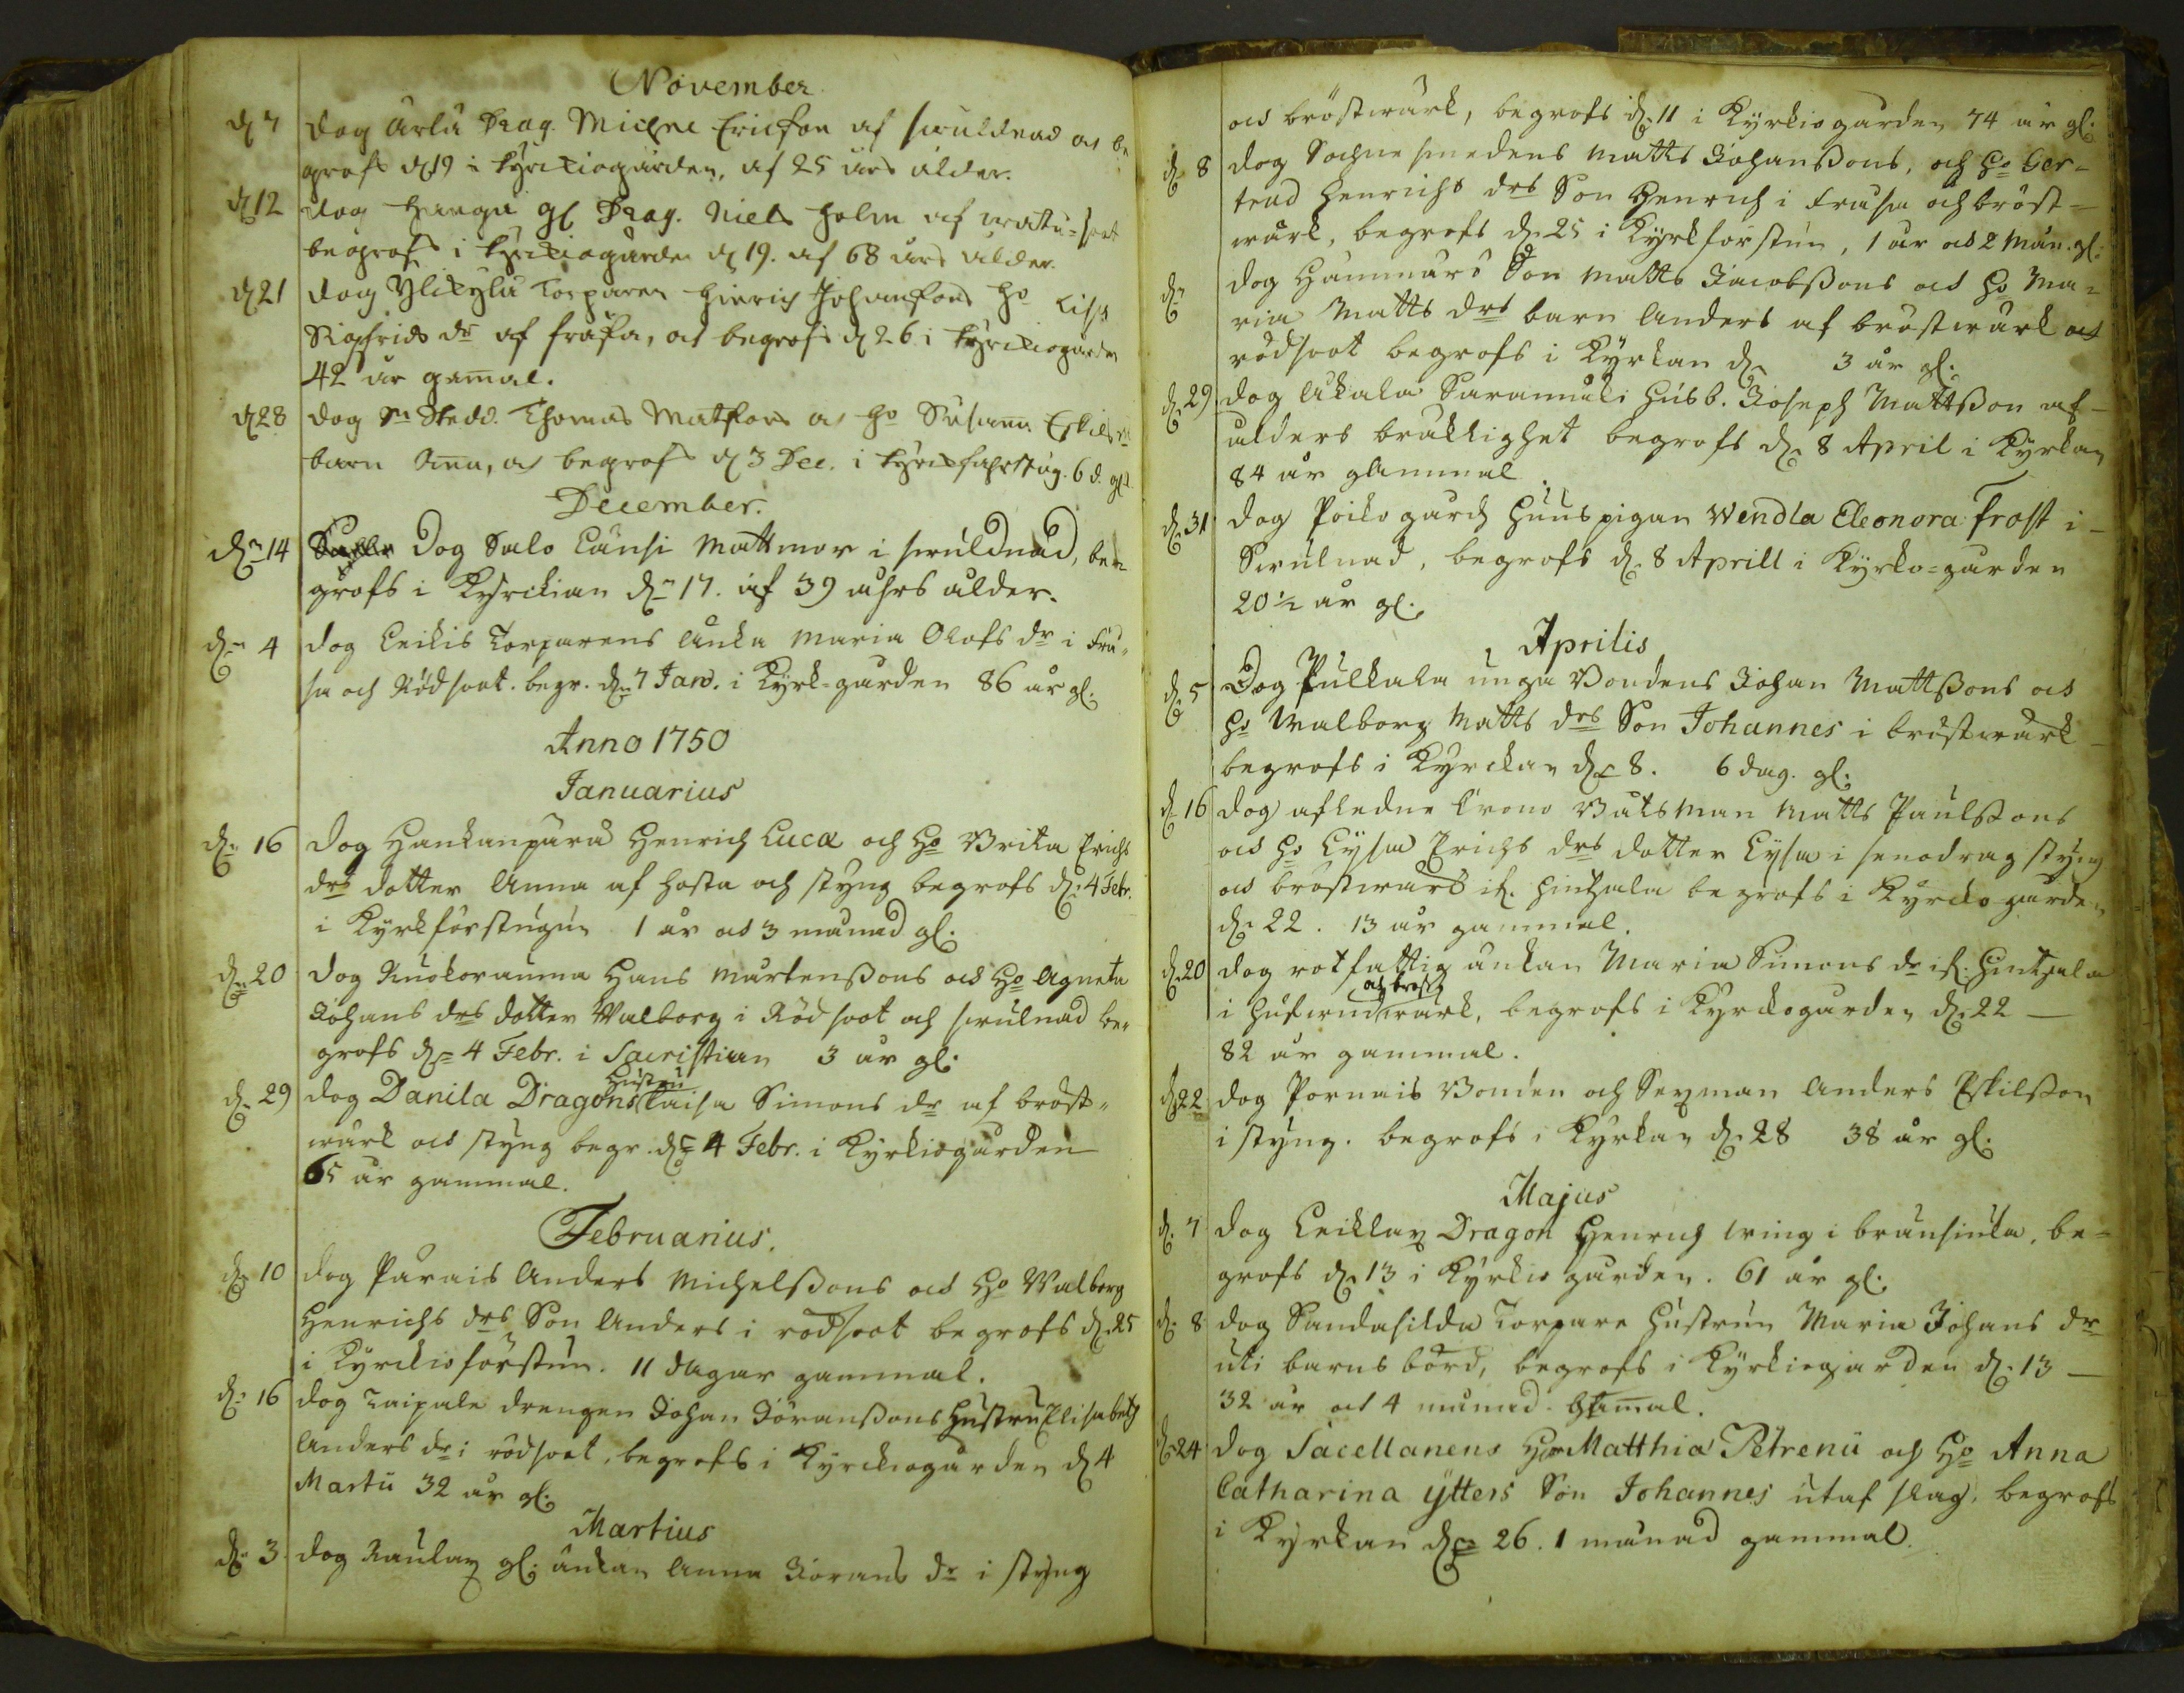 November
d 7 dog Arla Drag. Michel Ericson af swuldnad och be
grofs d 19 i kyrckiogården, af 25 års ålder.
d 12 dog Hanga gl Drag. Niels Holm af wattu-soot
begrofs i kyrckiogården d 19. af 68 års ålder.
d 21 dog Ylikylä Torparen Hinrich Johansons ho Lisa
Sigfrids dr af fråssa, och begrofs d 26 i kyrckiogården
42 år gamal.
d 28 dog Thomas Matsons och ho Susanna Eskils dr
barn Anna, och begrofs d 3 Dec. i kyrckfahrstug. 6 d. gl
December.
dn 14 Dog Salo Länsi Mattmor i swuldnad, be-
grofs i Kyrckian dn 17. af 39 ahrs ålder.
dn 4 dog Leikis Torparens änka Maria Olofs dr i Frå-
sa och Rödsoot. begr. dn 7 Jan. i Kyrk-gården 86 år gl.
Anno 1750
Januarius
dn 16 dog Hankanpärä Henrich Lucæ och Ho Brita Erichs
drs dotter Anna af hosta och styng begrofs d. 4 Febr.
i Kyrkförstugun 1 år och 3 månad gl.
dn 20 dog Ruokorauma Hans Mårtenßons och Ho Agneta
Johans drs dotter Walborg i Rödsoot och swulnad be-
grofs dn 4 Febr. i Sacristian 3 år gl.
d. 29 dog Danila Dragons hustru Caisa Simons dr af bröst-
wärk och styng begr. dn 4 Febr. i Kyrkiogården
65 år gammal.
Februarius.
d. 10 dog Parais Anders Michelßons och Ho Walborg
Henrichs drs Son Anders i rödsoot begrofs d. 25
i Kyrckioförstun. 11 dagar gammal.
d. 16 dog Taipale drengen Johan Jöranßons Hustru Elisabeth
Anders dr i rödsoot, begrofs i Kyrckiogården d 4
Martii 32 år gl.
Martius
d. 3. dog Raulax gl: änkan Anna Jörans dr i styng
och bröstwärk, begrofs d. 11 i Kyrkiogården 74 år gl.
d. 8 dog Sochne smedens Matts Johanßons, och ho Ger-
trud Henrichs drs Son Henrich i Fråssa och bröst-
wärk, begrofs d. 25 i Kyrkförstun, 1 år och 2 mån. gl:
d. dog Hammars Son Matts Jacobßons och ho Ma-
ria Matts drs barn Anders af bröstwärk och
rödsoot begrofs i Kyrkan d. 3 år gl.
d. 29 dog Ukala Saramäki Husb. Joseph Mattßon af
ålders bräklighet begrofs d. 8 April i Kyrkan
84 år gammal
d. 31 dog Poiko gård Huus pigan Wendla Eleonora Frost i
Swulnad, begrofs d. 8 Aprill i Kyrko-gården
20 1/2 år gl.
Aprilis
d. 5 Dog Pulkala unga Bondens Johan Mattßons och
ho Walborg Matts drs Son Johannes i bröstwärk
begrofs i Kyrckan d. 8. 6 dag. gl.
d. 16 dog afledne Crono Båtsman Matts Paulßons
och ho Lysa Erichs drs dotter Lysa i senodrag styng
och bröstwärk if. Hintzala begrofs i Kyrckogården
d. 22. 13 år gammal.
d. 20 dog rotfattig änkan Maria Simons dr if. Hintzala
och bröst
i hufwudwärk, begrofs i Kyrckogården d. 22
82 år gammal.
d. 22 dog Pornais Bonden och Sexman Anders Eskilßon
i styng. begrofs i Kyrkan d. 28 38 år gl.
Majus
d. 7 dog Leiklax Dragon Henrich Wring i brånsiuka, be-
grofs d. 13 i Kyrkio gården. 61 år gl.
d. 8 dog Sandasilda Torpare hustrun Maria Johans dr
uti barns börd, begrofs i Kyrkiogården d. 13
32 år och 4 månad gamal.
d. 24 dog Sacellanens Hr Matthiæ Petrenii och Ho Anna
Catharina Ytters Son Johannes utaf slag, begrofs
i Kyrkan d. 26. 1 månad gammal.